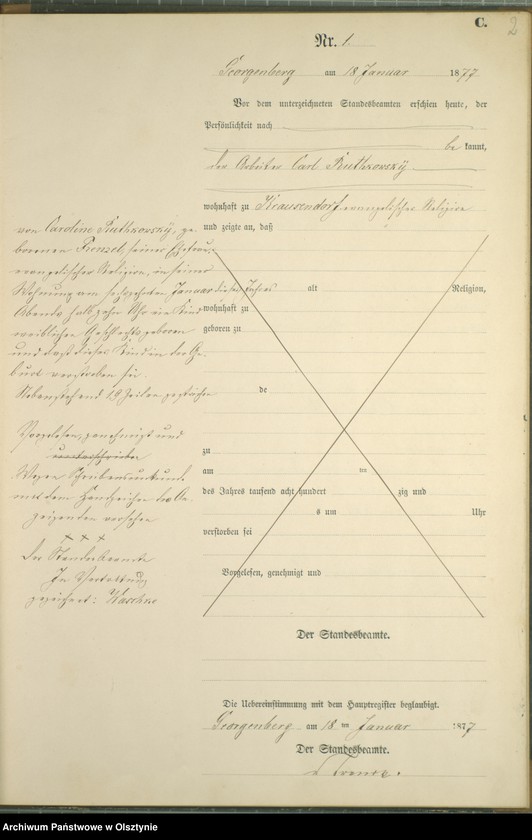 C.
2
Nr. 1.
Georgenberg am 18 Januar 1877
Vor dem unterzeichneten Standesbeamten erschien heute, der
Persönlichkeit nach
be kannt,
der Arbeiter Carl Ruthkowsky
wohnhaft zu Krausendorf evangelischer Religion
und zeigte an, daß
von Caroline Ruthkowsky, ge-
borenen Frenzel, seiner Ehefrau,
evangelischer Religion, in seiner
Wohnung am sechszehnten Januar dieses Jahres
Abends halb zehn Uhr ein Kind
weiblichen Geschlechts geboren
und daß dieses Kind in der Ge-
burt verstorben sei.
Nebenstehend 19 Zeilen gestrichen
Vorgelesen, genehmigt und
unterschrieben
Wegen Schreibensunkunde
mit dem Handzeichen des An-
zeigenden versehen
+ + +
Der Standesbeamte
In Vertretung
gezeichnet: Waschko
alt Religion,
wohnhaft zu
geboren zu
de
zu
am ten
des Jahres tausend acht hundert zig und
s um Uhr
verstorben sei
Vorgelesen, genehmigt und
Der Standesbeamte.
Die Uebereinstimmung mit dem Hauptregister beglaubigt.
Georgenberg am 18 ten Januar 1877
Der Standesbeamte.
Archiwum Państwowe w Olsztynie